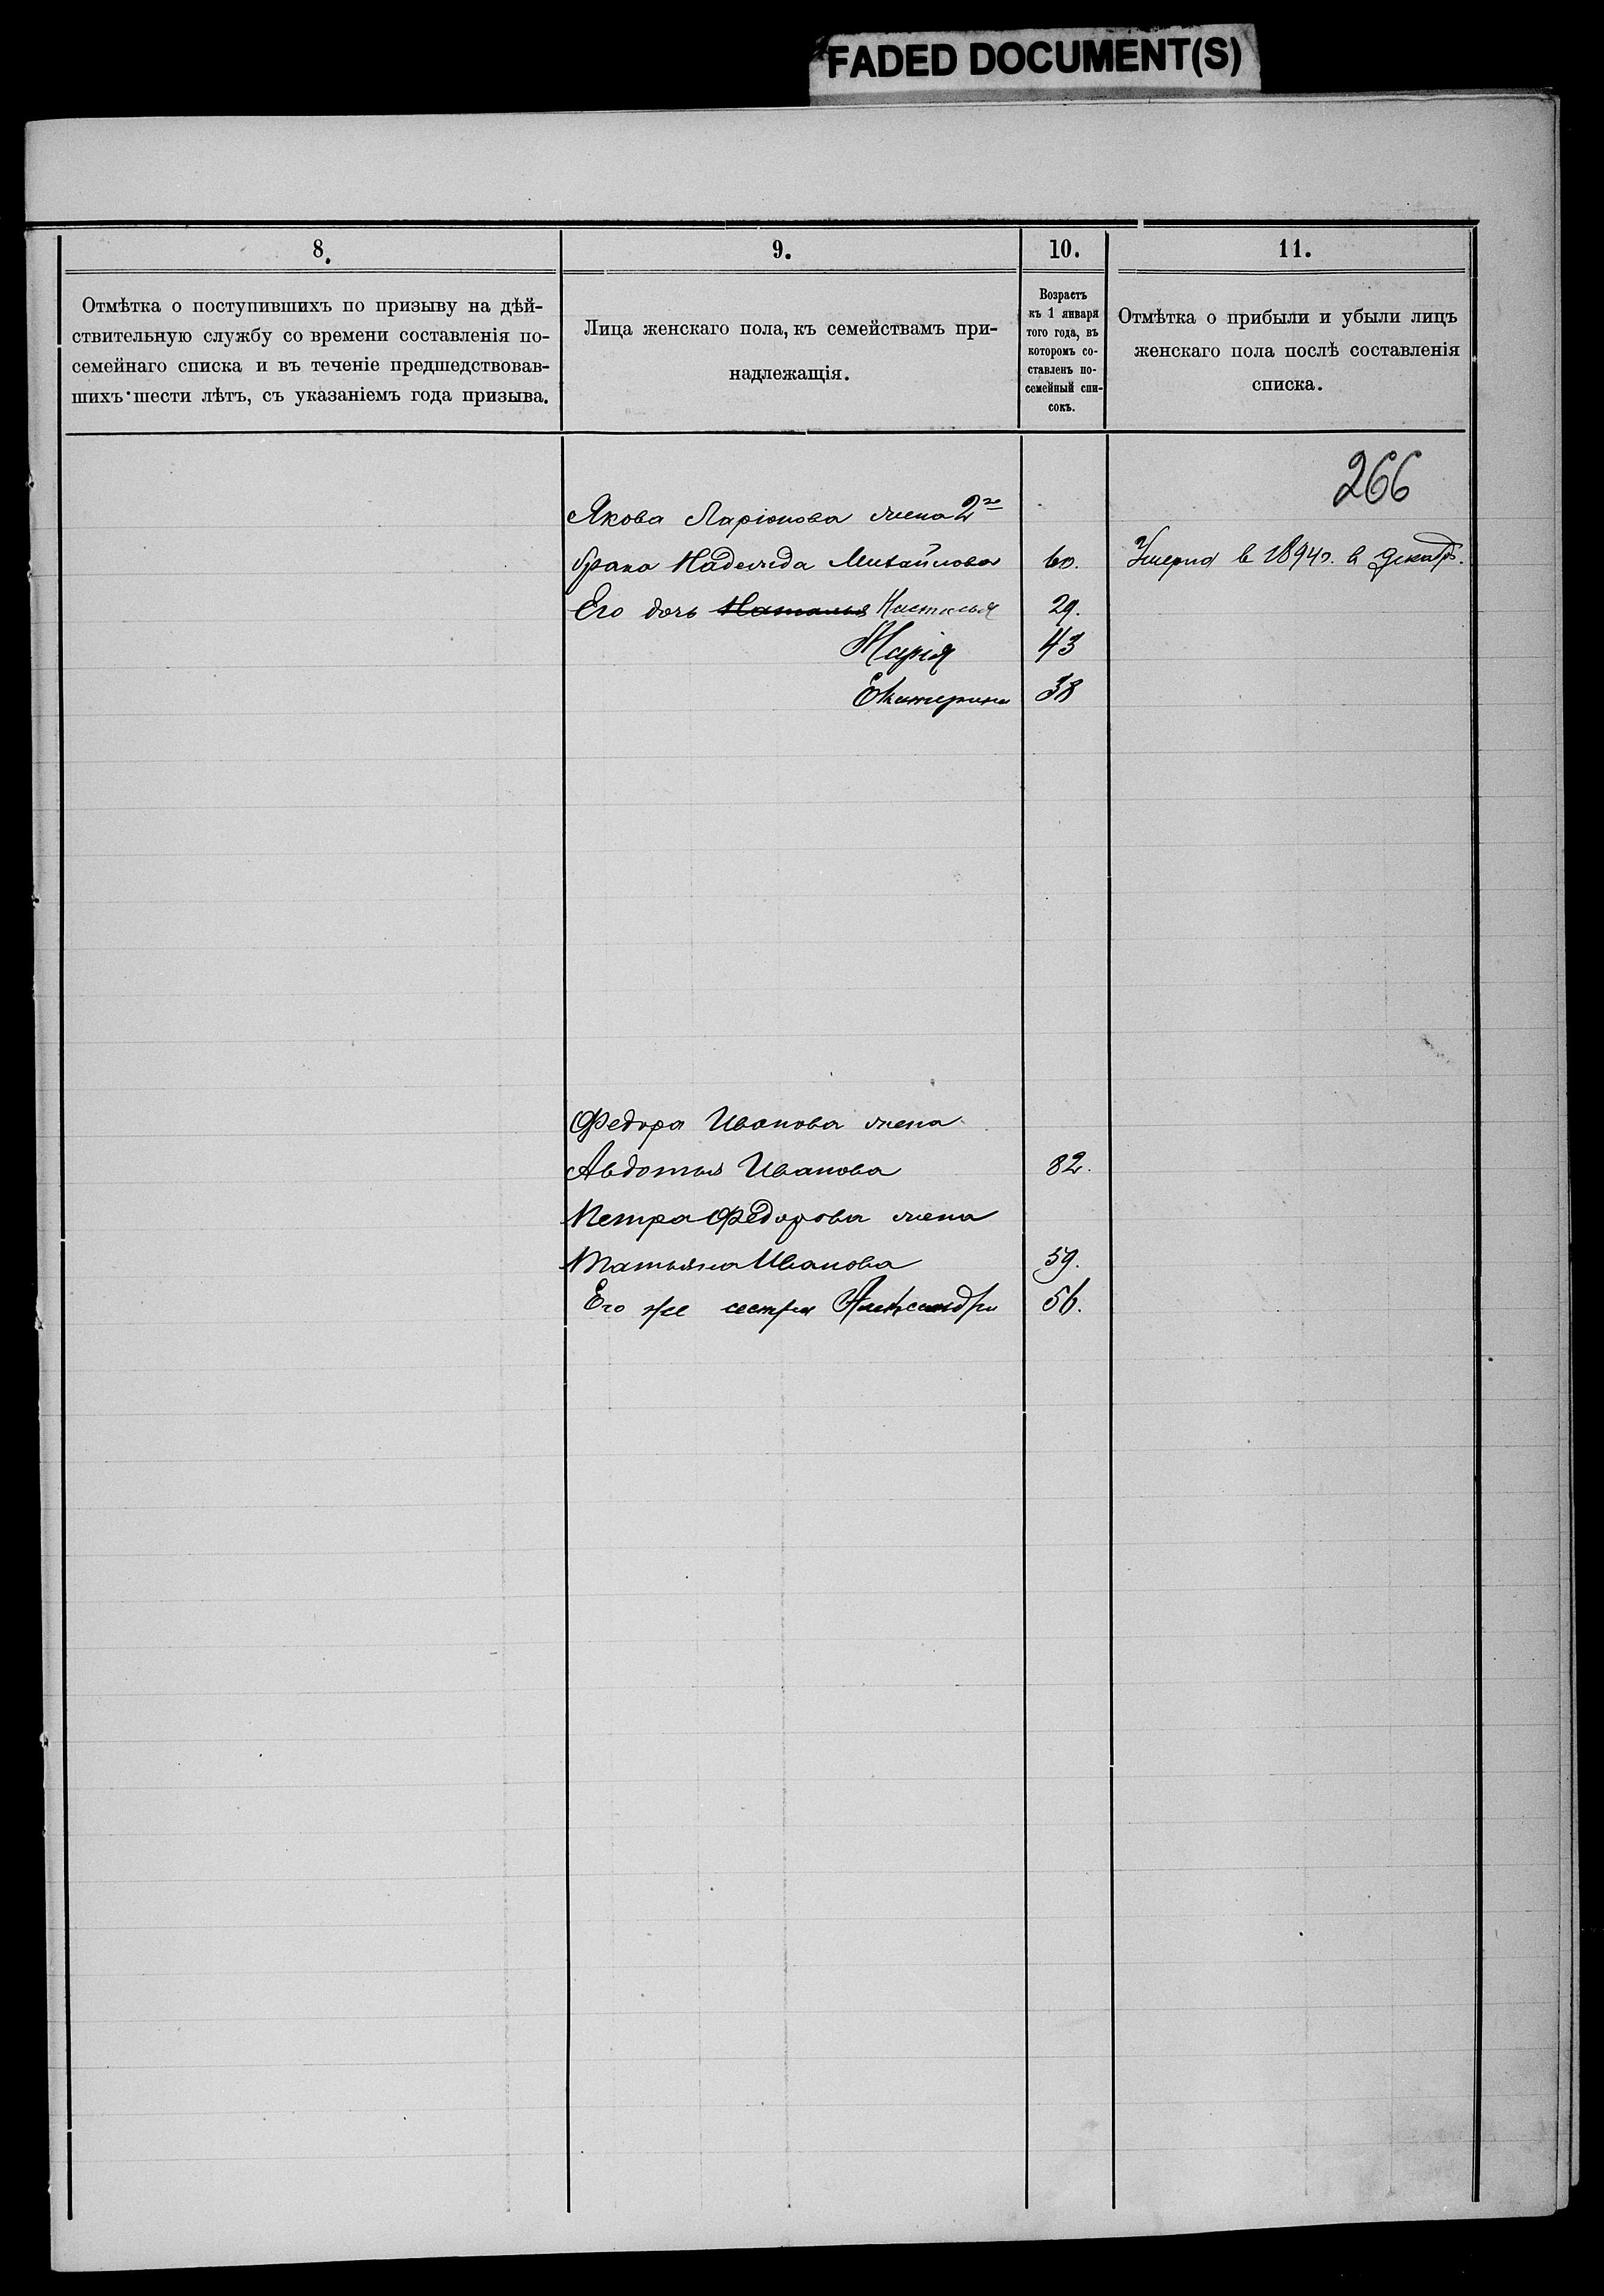 FADED DOCUMENT(S)
8.
9.
10.
11.
Отмѣтка о поступившихъ по призыву на дѣй-
ствительную службу со времени составленія по-
семейнаго списка и въ теченіе предшедствовав-
шихъ шести лѣтъ, съ указаніемъ года призыва.
Лица женскаго пола, къ семействамъ при-
надлежащія.
Возрастъ
къ 1 января
того года, въ
которомъ со-
ставленъ по-
семейный спи-
сокъ.
Отмѣтка о прибыли и убыли лицъ
женскаго пола послѣ составленія
списка.
266
Якова Ларіонова жена 2го
брака Надежда Михайлова 60. Умерла в 1894 г. в декабр.
Его дочь Наталья 29.
Марія 43
Екатерина 38
Федора Иванова жена
Авдотья Иванова 82.
Петра Федорова жена
Татьяна Иванова 59.
Его же сестра Александра 56.